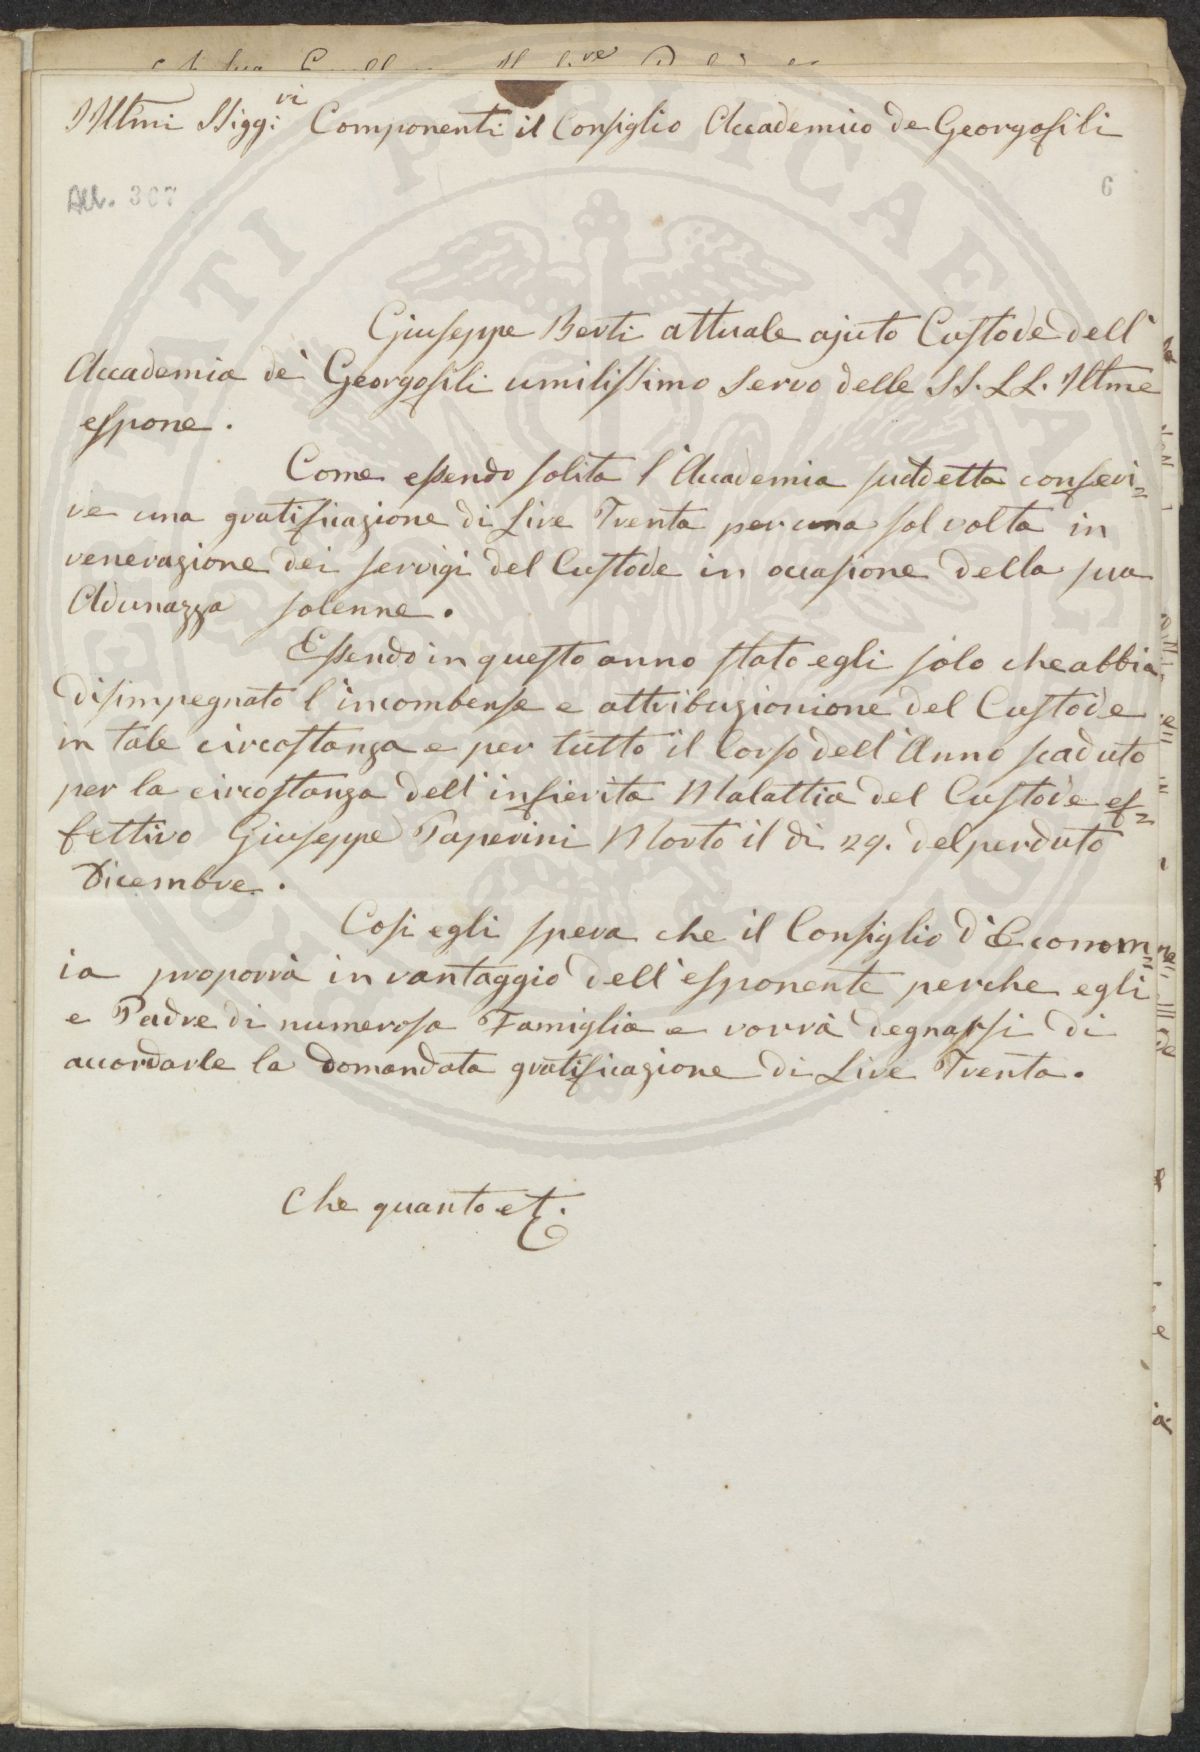 Illmi Sigg:ri Componenti il Consiglio Accademico de Georgofili
All. 307
6
Giuseppe Berti attuale ajuto Custode dell'
Accademia de' Georgofili umilissimo servo delle SS. LL. Illme
espone.
Come essendo solita l'Accademia suddetta conferi=
re una gratificazione di Lire Trenta per una sol volta in
venerazione dei servigi del Custode in occasione della sua
Adunazza solenne.
Essendo in questo anno stato egli solo che abbia
disimpegnato l'incombense e attribuzionione del Custode
in tale circostanza e per tutto il Corso dell'Anno scaduto
per la circostanza dell'infierita Malattia del Custode ef=
fettivo Giuseppe Paperini Morto il di 29. del perduto
Dicembre.
Cosi egli spera che il Consiglio d'Econom=
ia proporrà in vantaggio dell'esponente perche egli
e Padre di numerosa Famiglia e vorrà degnarsi di
accordarle la domandata gratificazione di Lire Trenta.
Che quanto et.